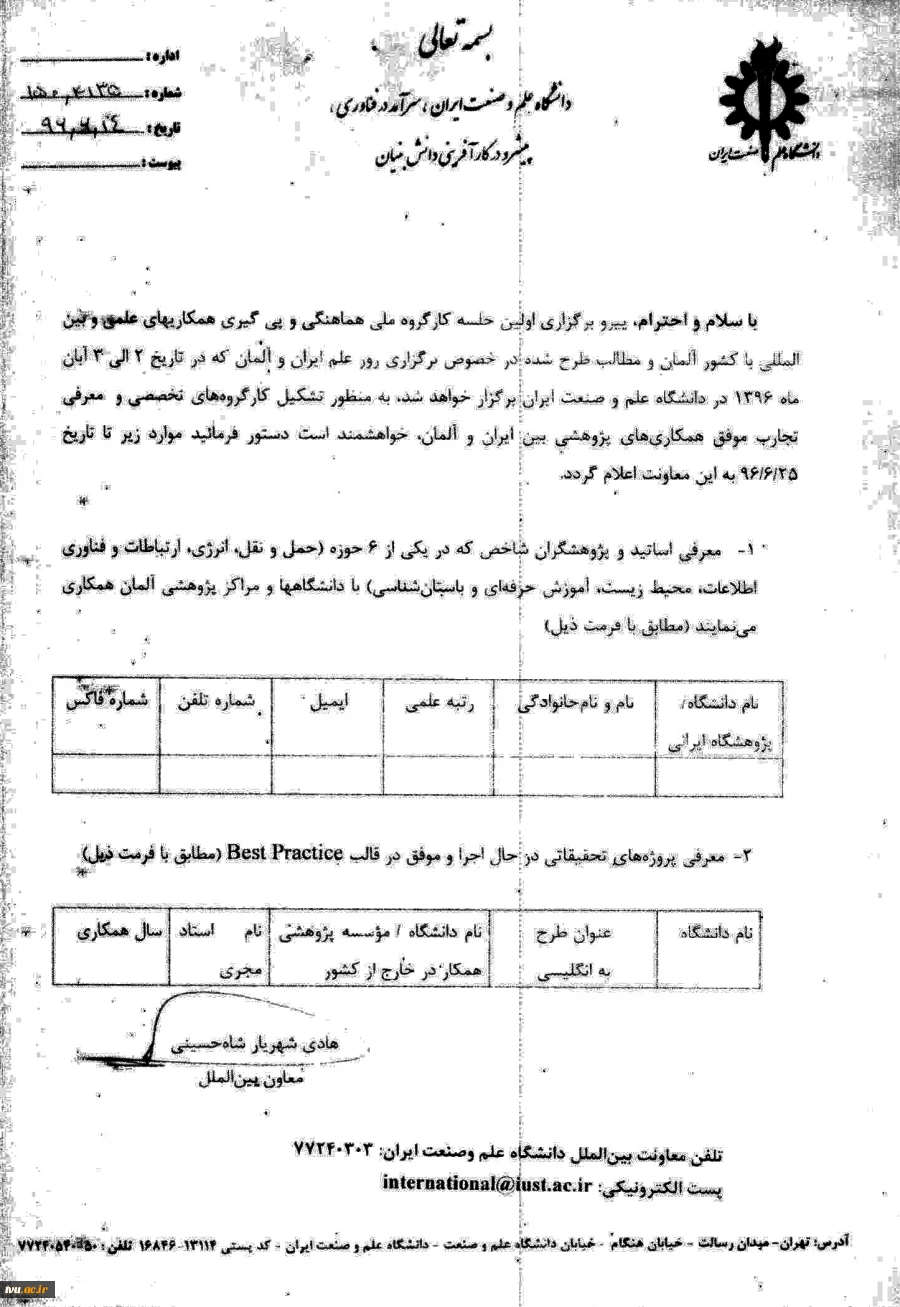 بسمه تعالی
دانشگاه علم و صنعت ایران، سرآمد در فناوری،
پیشرو در کارآفرینی دانش بنیان
دانشگاه علم و صنعت ایران
اداره:
شماره: ۱۵۰,۴۱۳۵
تاریخ: ۹۶,۶,۱۴
پیوست:
با سلام و احترام، پیرو برگزاری اولین جلسه کارگروه ملی هماهنگی و پی گیری همکاریهای علمی و بین
المللی با کشور آلمان و مطالب طرح شده در خصوص برگزاری روز علم ایران و آلمان که در تاریخ ۲ الی ۳ آبان
ماه ۱۳۹۶ در دانشگاه علم و صنعت ایران برگزار خواهد شد، به منظور تشکیل کارگروه‌های تخصصی و معرفی
تجارب موفق همکاری‌های پژوهشی بین ایران و آلمان، خواهشمند است دستور فرمائید موارد زیر تا تاریخ
۹۶/۶/۲۵ به این معاونت اعلام گردد.
۱- معرفی اساتید و پژوهشگران شاخص که در یکی از ۶ حوزه (حمل و نقل، انرژی، ارتباطات و فناوری
اطلاعات، محیط زیست، آموزش حرفه‌ای و باستان‌شناسی) با دانشگاهها و مراکز پژوهشی آلمان همکاری
می‌نمایند (مطابق با فرمت ذیل)
نام دانشگاه/ نام و نام‌خانوادگی رتبه علمی ایمیل شماره تلفن شماره فاکس
پژوهشگاه ایرانی
۲- معرفی پروژه‌های تحقیقاتی در حال اجرا و موفق در قالب Best Practice (مطابق با فرمت ذیل)
نام دانشگاه عنوان طرح نام دانشگاه / مؤسسه پژوهشی نام استاد سال همکاری
به انگلیسی همکار در خارج از کشور مجری
هادی شهریار شاه‌حسینی
معاون بین‌الملل
تلفن معاونت بین‌الملل دانشگاه علم وصنعت ایران: ۷۷۲۴۰۳۰۳
پست الکترونیکی: international@iust.ac.ir
آدرس: تهران- میدان رسالت - خیابان هنگام - خیابان دانشگاه علم و صنعت - دانشگاه علم و صنعت ایران - کد پستی ۱۳۱۱۴-۱۶۸۴۶ تلفن: ۵۰-۷۷۲۴۰۵۴۰
tvu.ac.ir